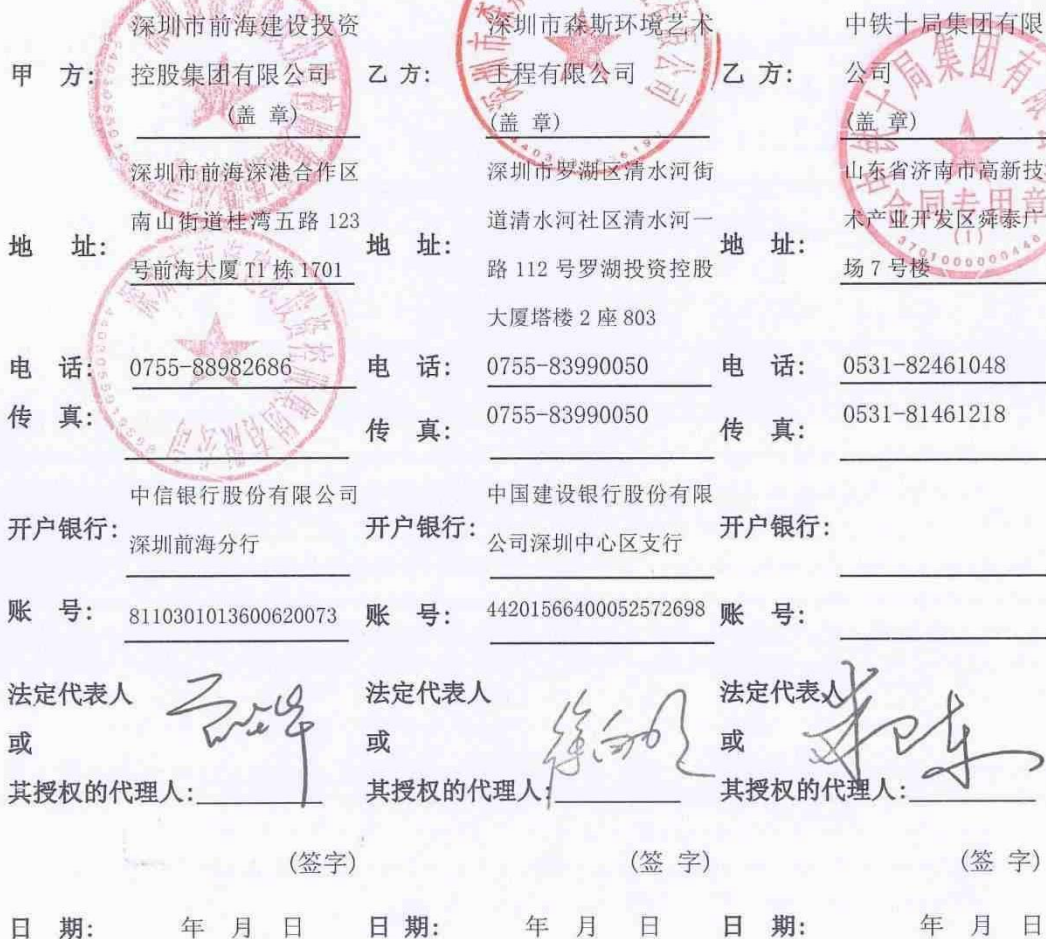 深圳市前海建设投资
甲 方： 控股集团有限公司
(盖 章)
深圳市前海深港合作区
南山街道桂湾五路 123
地 址： 号前海大厦 T1 栋 1701
电 话： 0755-88982686
传 真：
中信银行股份有限公司
开户银行： 深圳前海分行
账 号： 8110301013600620073
法定代表人
或
其授权的代理人：
(签字)
日 期： 年 月 日
深圳市森斯环境艺术
乙 方： 工程有限公司
(盖 章)
深圳市罗湖区清水河街
道清水河社区清水河一
地 址： 路 112 号罗湖投资控股
大厦塔楼 2 座 803
电 话： 0755-83990050
传 真： 0755-83990050
中国建设银行股份有限
开户银行： 公司深圳中心区支行
账 号： 44201566400052572698
法定代表人
或
其授权的代理人：
(签 字)
日 期： 年 月 日
中铁十局集团有限
乙 方： 公司
(盖 章)
山东省济南市高新技
地 址： 术产业开发区舜泰广
场 7 号楼
电 话： 0531-82461048
传 真： 0531-81461218
开户银行：
账 号：
法定代表人
或
其授权的代理人：
(签 字)
日 期： 年 月 日
合同专用章
(1)